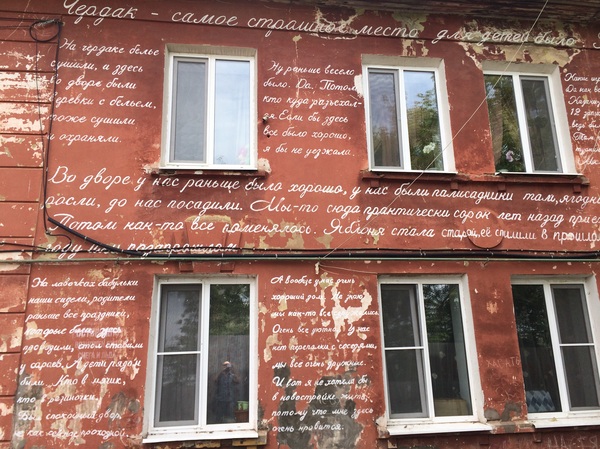 Чердак - самое страшное место для детей было
На чердаке белье
сушили, и здесь
во дворе были
веревки с бельем,
тоже сушили
и охраняли.
Ну раньше весело
было. Да. Потом
кто куда разъехал-
ся. Если бы здесь
все было хорошо,
я бы не уезжала.
Какие
Да нет
12
ведь
Мы
Во дворе у нас раньше было хорошо, у нас были палисадники там, ягодн
росли, до нас посадили. Мы-то сюда практически сорок лет назад
Потом как-то все поменялось. Яблоня стала старой, её спилили в прошло
году или позапрошлом
На лавочках бабульки
наши сидели, родители
раньше все праздники,
которые были, здесь
проводили, стол ставили
у сараев. А дети рядом
были. Кто в мячик,
кто в резиночки.
Был спокойный двор,
не как сейчас проходной.
А вообще у нас очень
хороший дом. Не знаю
мы как-то все
Очень все уютно. У нас
нет перепалки с соседями,
мы все очень дружные.
И вот я не хотела бы
в новостройке жить,
потому что мне здесь
очень нравится.